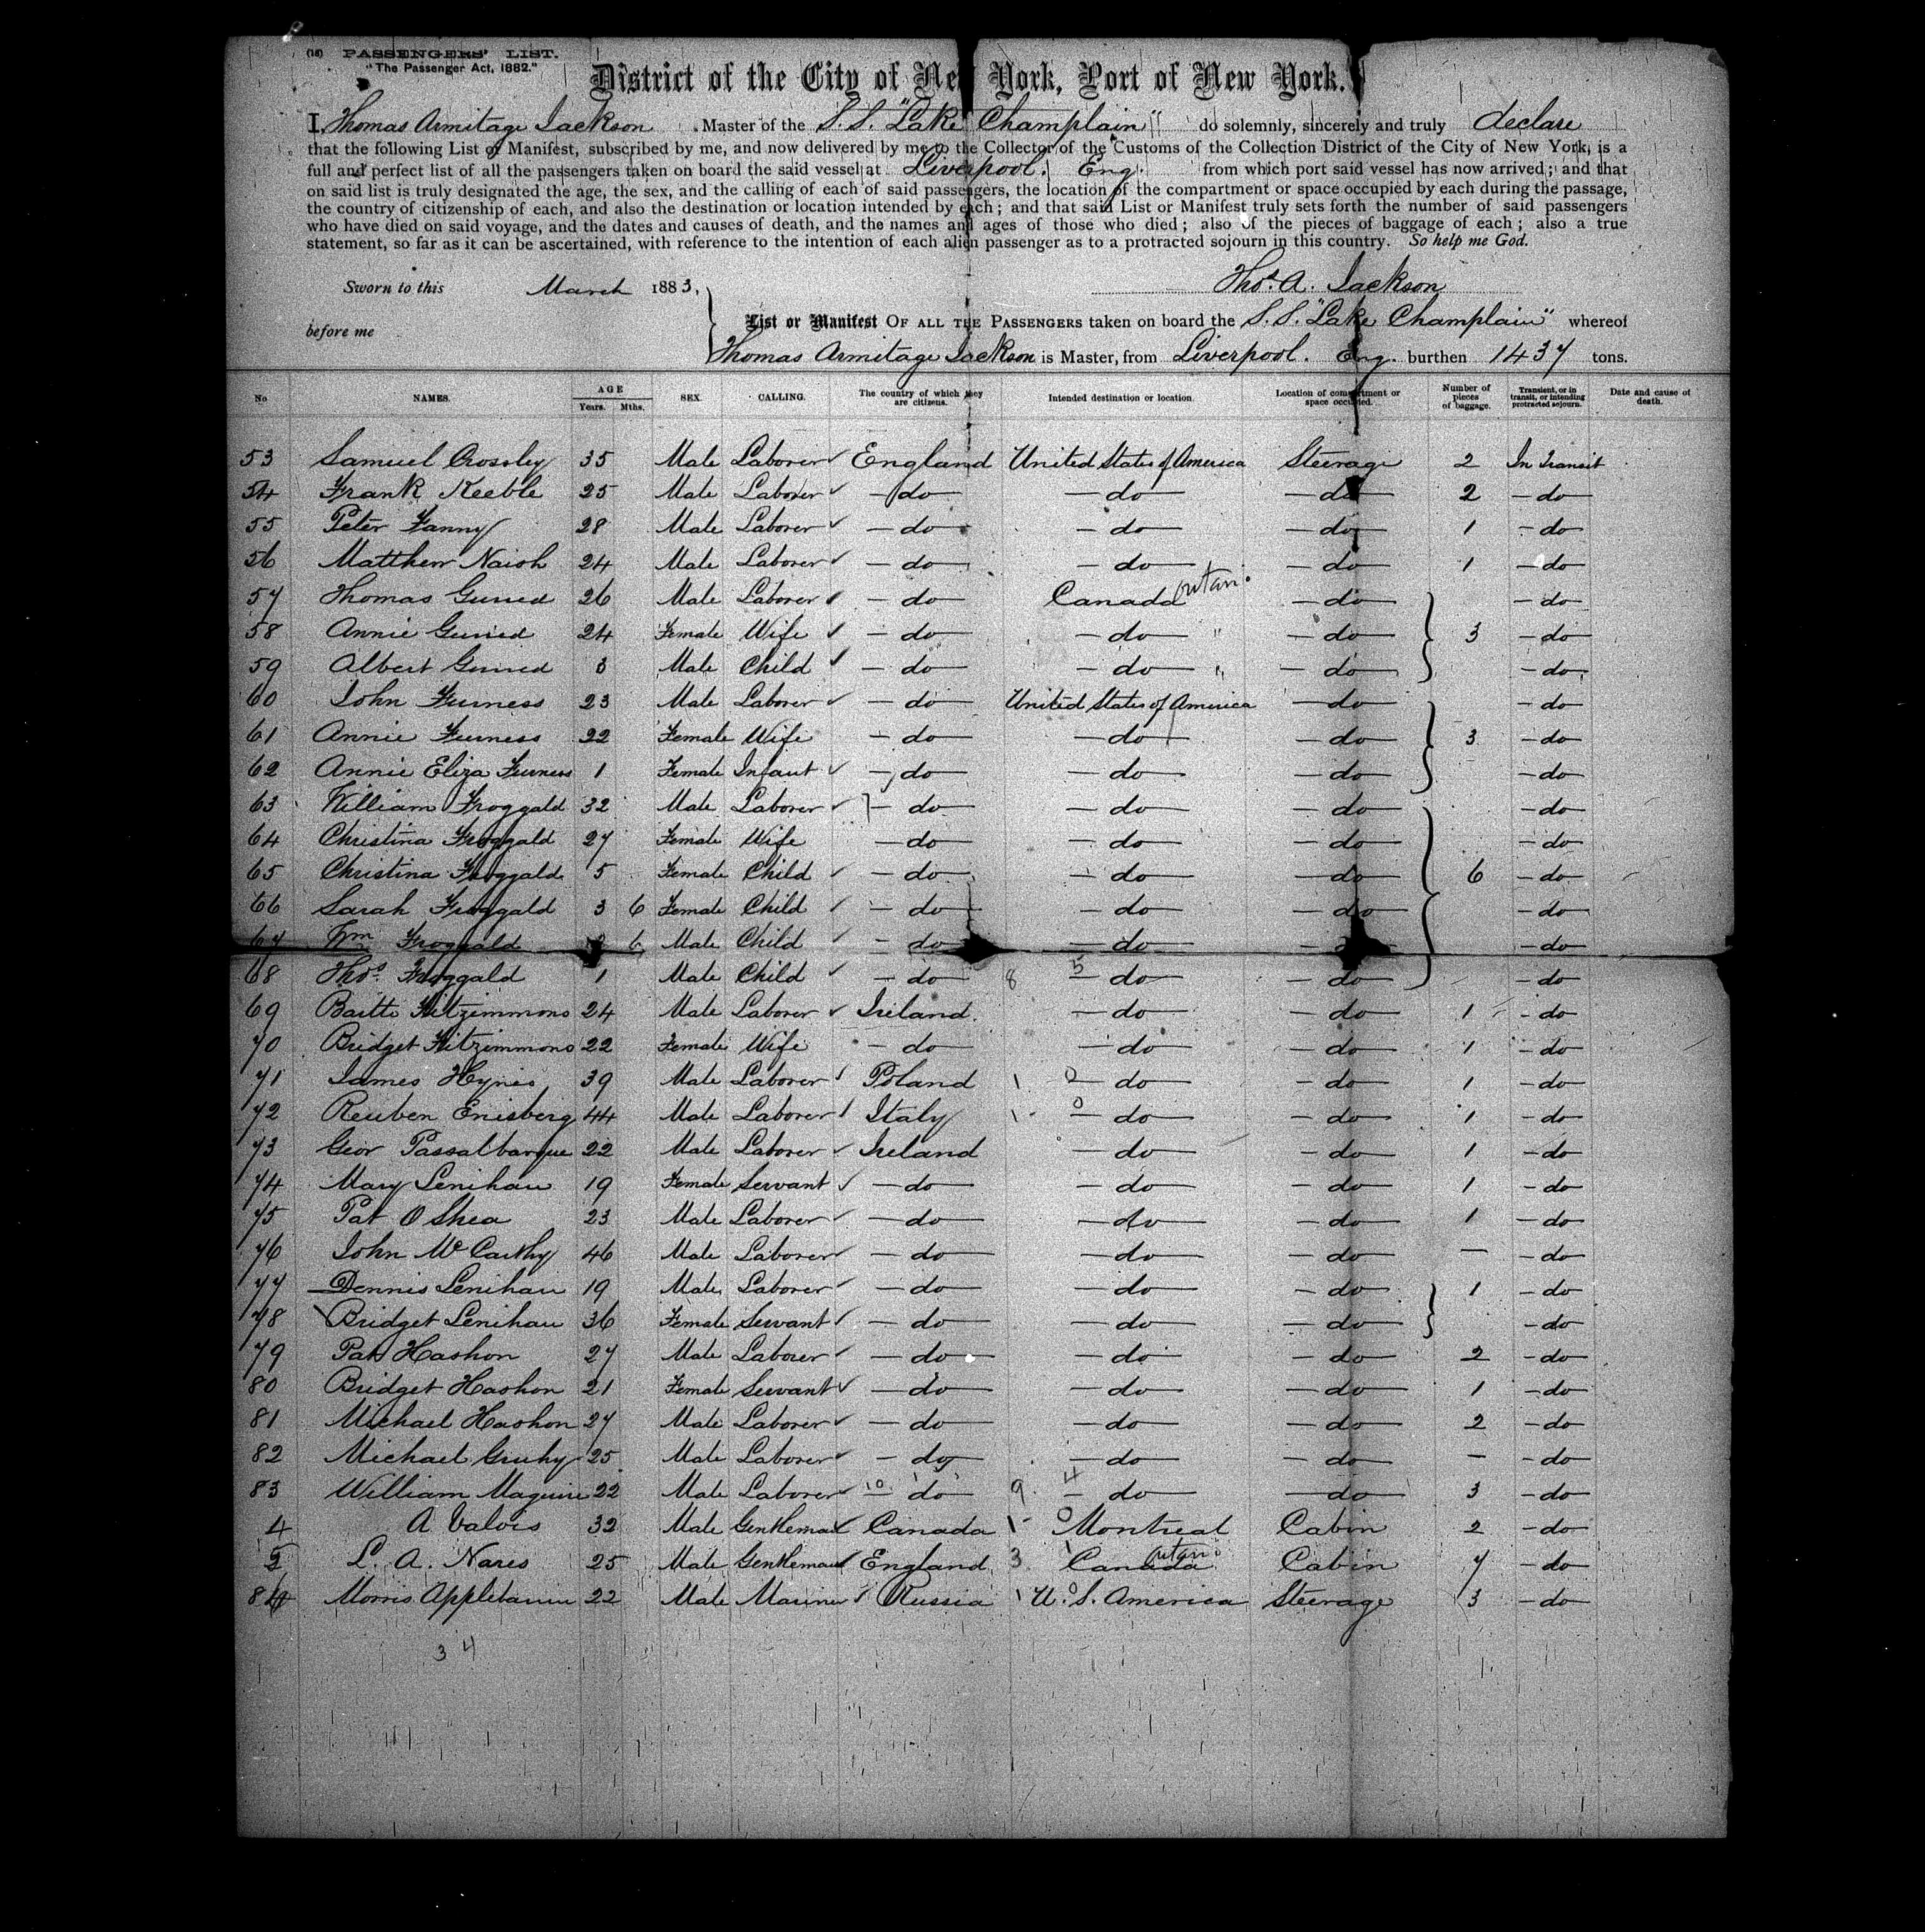 (18) PASSENGERS' LIST.
"The Passenger Act, 1882."
District of the City of New York, Port of New York.
I, Thomas Armitage Jackson Master of the S.S. "Lake Champlain" do solemnly, sincerely and truly declare
that the following List of Manifest, subscribed by me, and now delivered by me to the Collector of the Customs of the Collection District of the City of New York, is a
full and perfect list of all the passengers taken on board the said vessel at Liverpool. Eng. from which port said vessel has now arrived; and that
on said list is truly designated the age, the sex, and the calling of each of said passengers, the location of the compartment or space occupied by each during the passage,
the country of citizenship of each, and also the destination or location intended by each; and that said List or Manifest truly sets forth the number of said passengers
who have died on said voyage, and the dates and causes of death, and the names and ages of those who died; also of the pieces of baggage of each; also a true
statement, so far as it can be ascertained, with reference to the intention of each alien passenger as to a protracted sojourn in this country. So help me God.
Sworn to this March 1883, Thos. A. Jackson
before me
List or Manifest OF ALL THE PASSENGERS taken on board the S.S. "Lake Champlain" whereof
Thomas Armitage Jackson is Master, from Liverpool. Eng. burthen 1437 tons.
No NAMES. AGE Years. Mths. SEX. CALLING. The country of which they are citizens. Intended destination or location. Location of compartment or space occupied. Number of pieces of baggage. Transient, or in transit, or intending protracted sojourn. Date and cause of death.
53 Samuel Crossley 35 Male Laborer England United States of America Steerage 2 In Transit
54 Frank Keeble 25 Male Laborer do do do 2 do
55 Peter Fanny 28 Male Laborer do do do 1 do
56 Matthew Naish 24 Male Laborer do do do 1 do
57 Thomas Gunned 26 Male Laborer do Canada do do
58 Annie Gunned 24 Female Wife do do " do 3 do
59 Albert Gunned 3 Male Child do do " do do
60 John Furness 23 Male Laborer do United States of America do do
61 Annie Furness 22 Female Wife do do do 3 do
62 Annie Eliza Furness 1 Female Infant do do do do
63 William Froggald 32 Male Laborer do do do do
64 Christina Froggald 27 Female Wife do do do do
65 Christina Froggald 5 Female Child do do do 6 do
66 Sarah Froggald 3 6 Female Child do do do do
67 Wm Froggald 6 Male Child do do do
68 Thos. Froggald 1 Male Child do 8 5 do do do
69 Bartt. Fitzimmons 24 Male Laborer Ireland. do do 1 do
70 Bridget Fitzimmons 22 Female Wife do do do 1 do
71 James Hynes 39 Male Laborer Poland 1 0 do do 1 do
72 Reuben Enisberg 44 Male Laborer Italy 1 0 do do 1 do
73 Geor Passalbarque 22 Male Laborer Ireland do do 1 do
74 Mary Lenihan 19 Female Servant do do do 1 do
75 Pat O Shea 23 Male Laborer do do do 1 do
76 John McCarthy 46 Male Laborer do do do — do
77 Dennis Lenihan 19 Male Laborer do do do 1 do
78 Bridget Lenihan 36 Female Servant do do do do
79 Pat Hashon 27 Male Laborer do do do 2 do
80 Bridget Hashon 21 Female Servant do do do 1 do
81 Michael Hashon 27 Male Laborer do do do 2 do
82 Michael 25 Male Laborer do do do - do
83 William Maguire 22 Male Laborer 10 do 9 4 do do 3 do
4 A Valois 32 Male Gentleman Canada 1 0 Montreal Cabin 2 do
5 L. A. Nares 25 Male Gentleman England 3 1 Canada Cabin 7 do
84 Morris Applebaum 22 Male Mariner Russia 1 0 U.S. America Steerage 3 do
34